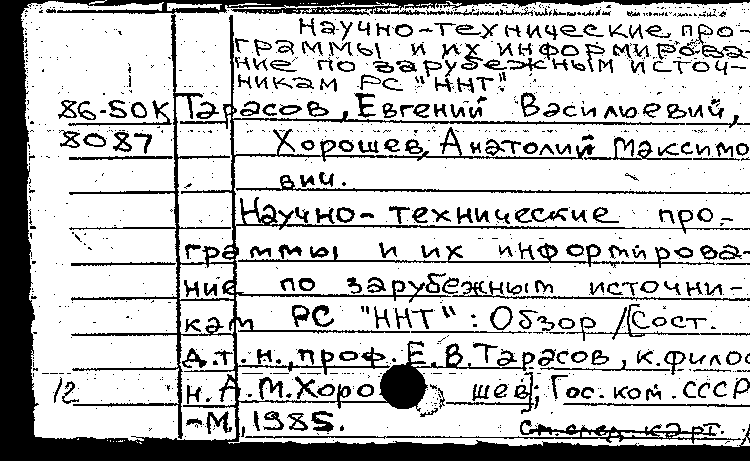 Научно-технические про-
граммы и их информирова-
ние по зарубежным источ-
никам РС "ННТ".
86-50К Тарасов, Евгений Васильевич,
8087 Хорошев, Анатолий Максимо
вич.
Научно-технические про-
граммы и их информирова-
ние по зарубежным источни-
кам РС "ННТ": Обзор / [Сост.
д.т.н., проф. Е.В. Тарасов, к.филос
12 н. А.М. Хорошев]; Гос. ком. СССР
-М., 1985.
См. след. карт.